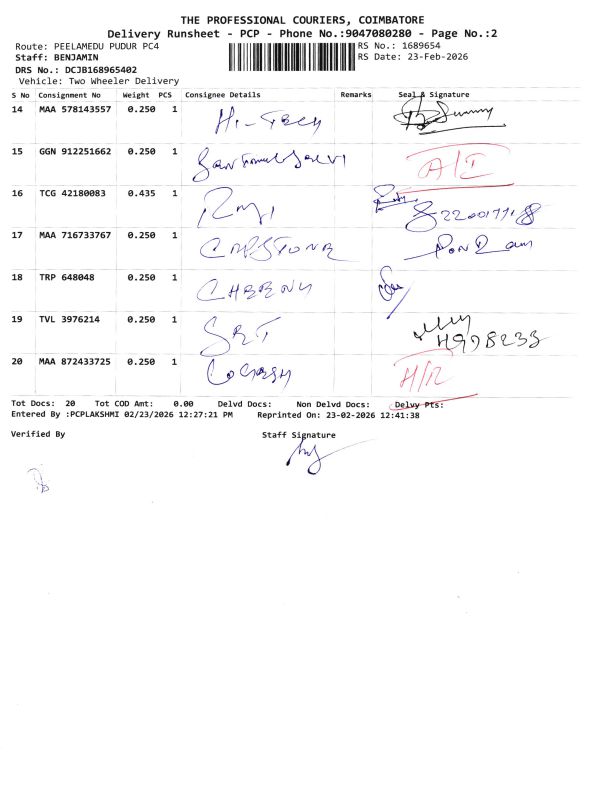 THE PROFESSIONAL COURIERS, COIMBATORE
Delivery Runsheet - PCP - Phone No.:9047080280 - Page No.:2
Route: PEELAMEDU PUDUR PC4 RS No.: 1689654
Staff: BENJAMIN RS Date: 23-Feb-2026
DRS No.: DCJB168965402
Vehicle: Two Wheeler Delivery
S No Consignment No Weight PCS Consignee Details Remarks Seal & Signature
14 MAA 578143557 0.250 1 Hi-Tech
15 GGN 912251662 0.250 1 A/I
16 TCG 42180083 0.435 1
17 MAA 716733767 0.250 1 CAPSTONE
18 TRP 648048 0.250 1
19 TVL 3976214 0.250 1
20 MAA 872433725 0.250 1 H/R
Tot Docs: 20 Tot COD Amt: 0.00 Delvd Docs: Non Delvd Docs: Delvy Pts:
Entered By :PCPLAKSHMI 02/23/2026 12:27:21 PM Reprinted On: 23-02-2026 12:41:38
Verified By Staff Signature